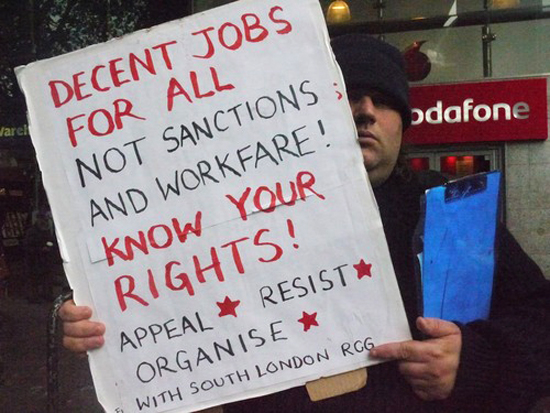 DECENT JOBS
FOR ALL
NOT SANCTIONS
AND WORKFARE!
KNOW YOUR
RIGHTS!
APPEAL ★ RESIST ★
ORGANISE ★
WITH SOUTH LONDON RCG
odafone